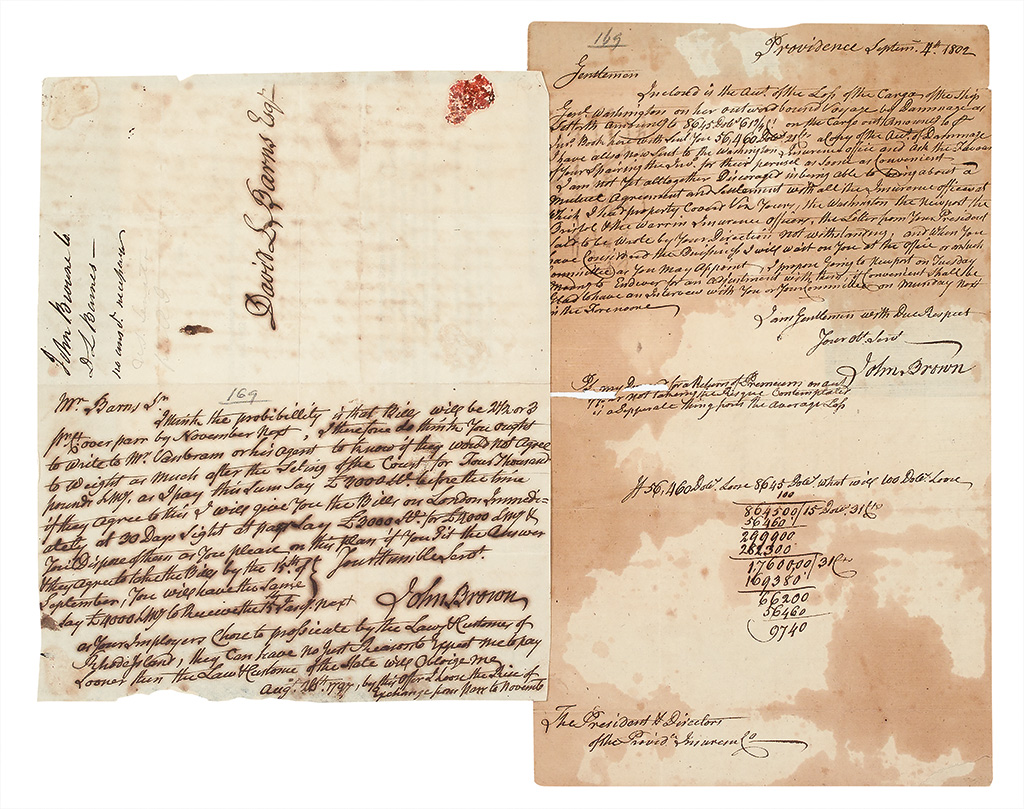 John Browne to
D L Barnes —
no ansr. necessary
David L Barns Esqr
169
Mr. Barns Sr
I think the probibillity is that Bills will be 2½ or 3
pr Ct over parr by November Next, I therefore do think You ought
to write to Mr. Vanbram or his agent to know if they would not Agree
to Weight as Much after the Seting of the Court for Four Thousand
pounds LMy, as I pay this Sum Say £3000 St. before the time
if they agree to this I will give You the Bills on London Immedi=
ately at 30 Days Sight at parr Say £3000 St. for £4000 LMy &
You'l Dispose of them as You please on this plan if You Git the Answer
& they Agree to take the Bills by the 15th of
September, You will have the Same
Say £4000 LMy to Receive the next
Your Humble Servt.
John Brown
as Your Employers Chose to prossicate by the Law & Customes of
Rhode Island, they Can have no Just Reason to Expect me to pay
Sooner then the Law & Custome of the State will Obloige me
Augt. 1797, by this Offer I Loose the Rise of
Exchange from parr to Novembr
169
Providence Septem. 4th 1802
Gentlemen
Inclosed is the Act. of the Loss of the Cargo of the Ship
Genl. Washington on her outward bound Voyage by Dammage as
Setforth amounting to 8645 Dols. on the Cargo out Amounted to pr
Inv. Both here with Sent You 56,460 Dols. a Copy of the Act. of Dammage
I have also now Sent to the Washington Insurance office and Ask the favour
of Your Spairing the Inv. for their perusel as Soone as Convenient —
I am not Yet alltogether Discoraged in being able to bring about a
Mutuel Agreement and Settlement with all the Insurance offices at
Which I had property Coverd Viz Yours, the Washington the Newport the
Bristol & the Warrin Insurance Officers, the Letter from Your President
Said to be Wrote by Your Direction not withstanding, and When You
have Considred the Buissness I will wait on You at the office or which
Committee as You May Appoint, I propose going to Newport on Tuesday
Morng to Endever for an adjustment with them, if Convenient Shall be
Glad to have an Interview with You or Your Committee on Monday Next
in the Forenoone
I am Gentlemen with Due Respect
Your Ob. Servt
John Brown
Ps. my for a Return of Premeum on act
of not takeing the Resque Contemplated
is a Sepperate thing from the average Loss
If 56,460 Dols. Loose 8645 Dols. what will 100 Dols. Loose
100
864500 / 15 Dols. 31 Cts
56460
299900
282300
1760000 / 31 Cts
169380
66200
56460
9740
The President & Directors
of the Provide. Insuren. Co